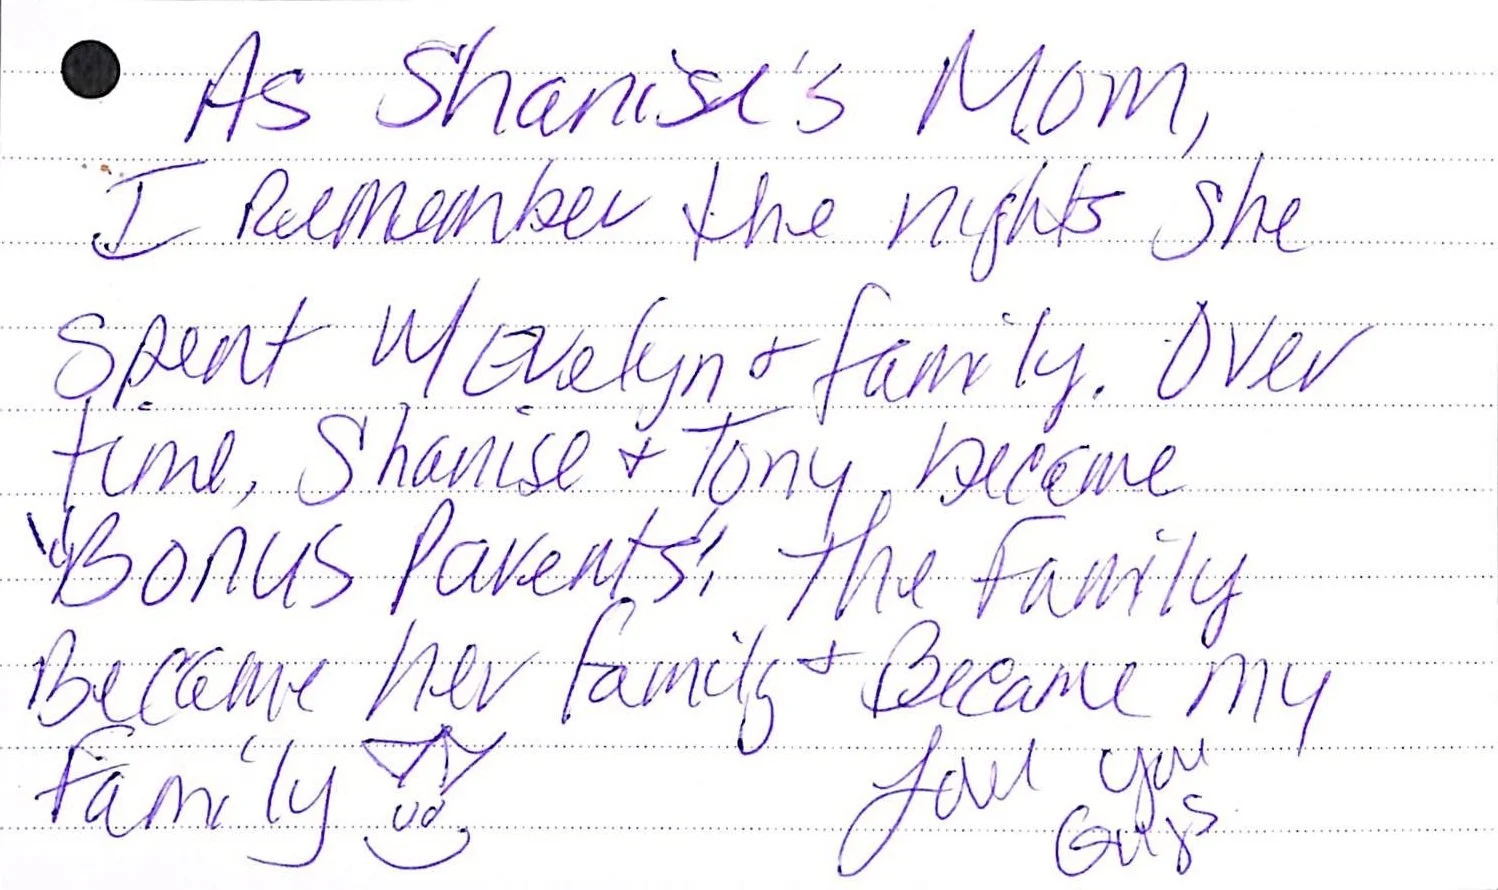 As Shanise's Mom,
I Remember the nights she
Spent w/ Evelyn & family. Over
time, Shanise & Tony, became
"Bonus Parents"! The Family
Became her family & Became my
Family
Love you
Guys